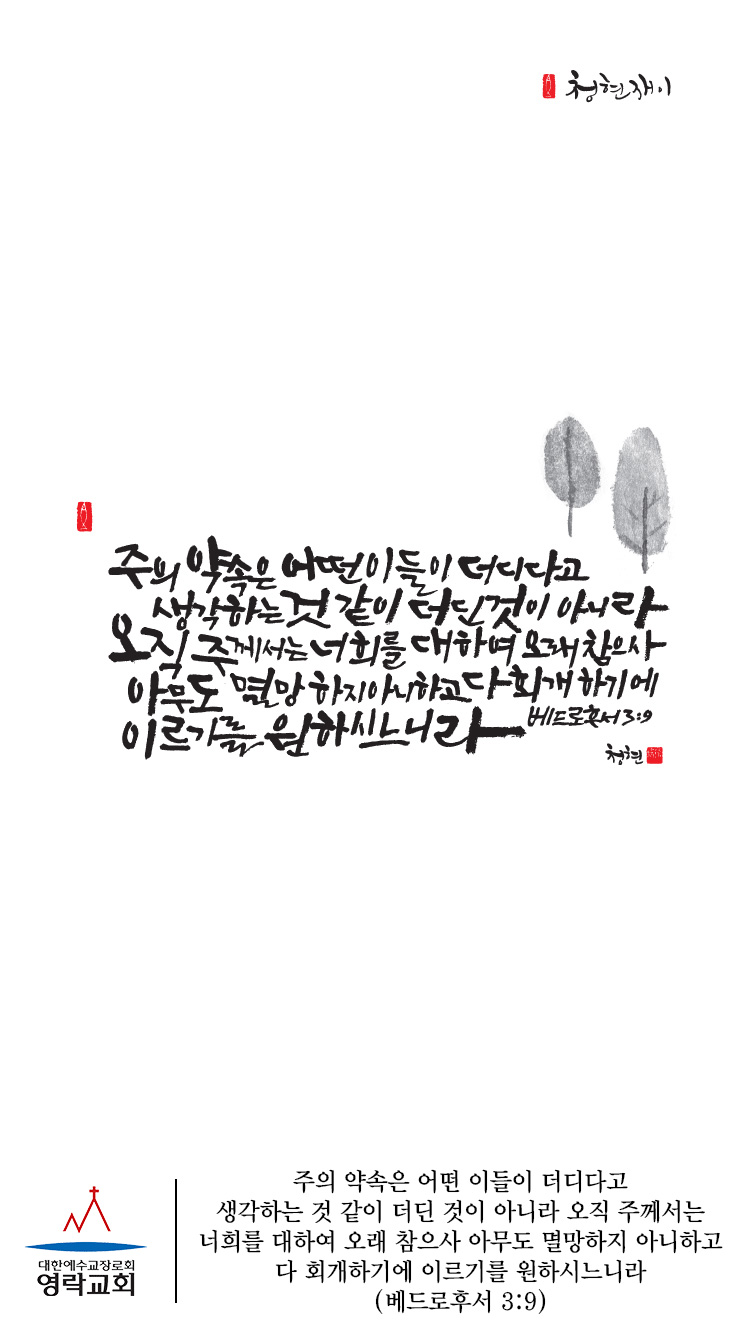 청현재이
주의 약속은 어떤 이들이 더디다고
생각하는 것 같이 더딘 것이 아니라
오직 주께서는 너희를 대하여 오래 참으사
아무도 멸망하지 아니하고 다 회개하기에
이르기를 원하시느니라 베드로후서 3:9
청현
대한예수교장로회
영락교회
주의 약속은 어떤 이들이 더디다고
생각하는 것 같이 더딘 것이 아니라 오직 주께서는
너희를 대하여 오래 참으사 아무도 멸망하지 아니하고
다 회개하기에 이르기를 원하시느니라
(베드로후서 3:9)